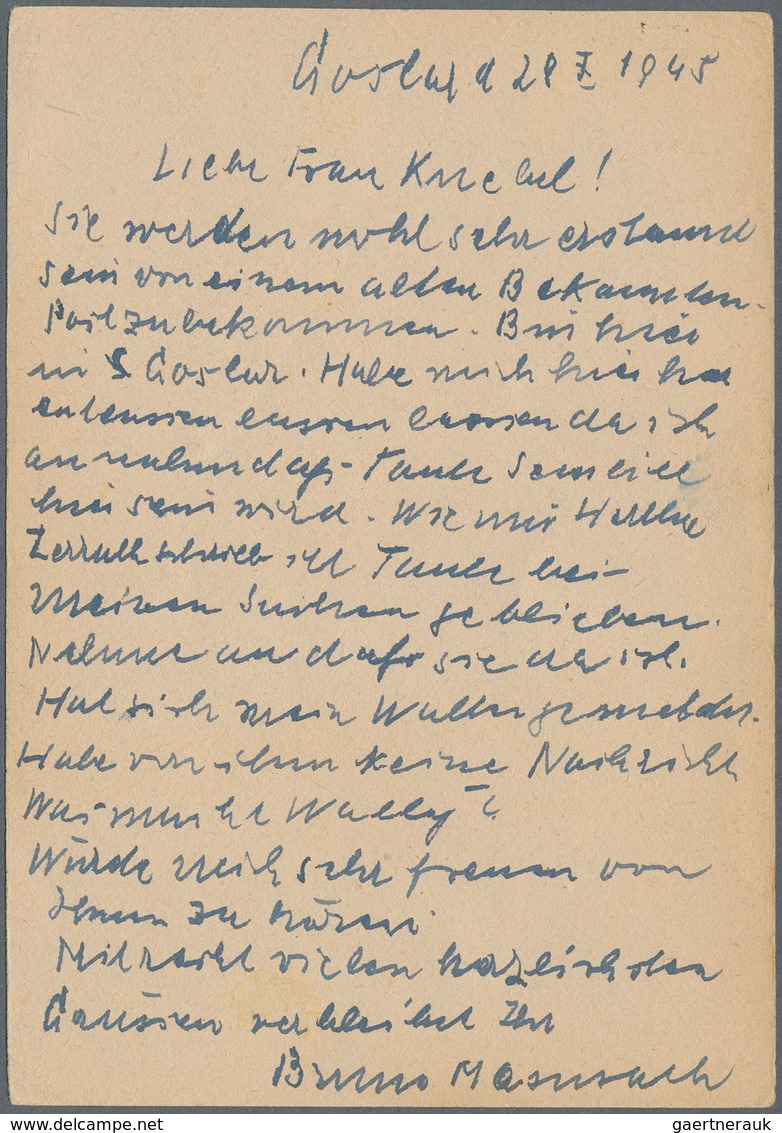 Goslar d 28 X 1945
Liebe Frau Knebel!
Sie werden wohl sehr erstaunt
sein von einem alten Bekannten
Post zu bekommen. Bin hier
in Goslar. Habe mich hier her
entlassen lassen da ich
annehme daß Tante
hier sein wird. Wie mir
schrieb ist Tante bei
meinen geblieben.
Nehme an daß sie da ist.
Hat sich mein Walter gemeldet.
Habe von ihm keine Nachricht
Was macht Wally?
Würde mich sehr freuen von
Ihnen zu hören.
Mit recht vielen herzlichsten
Grüssen verbleibt Ihr
Bruno
delcampe.net
gaertnerauk